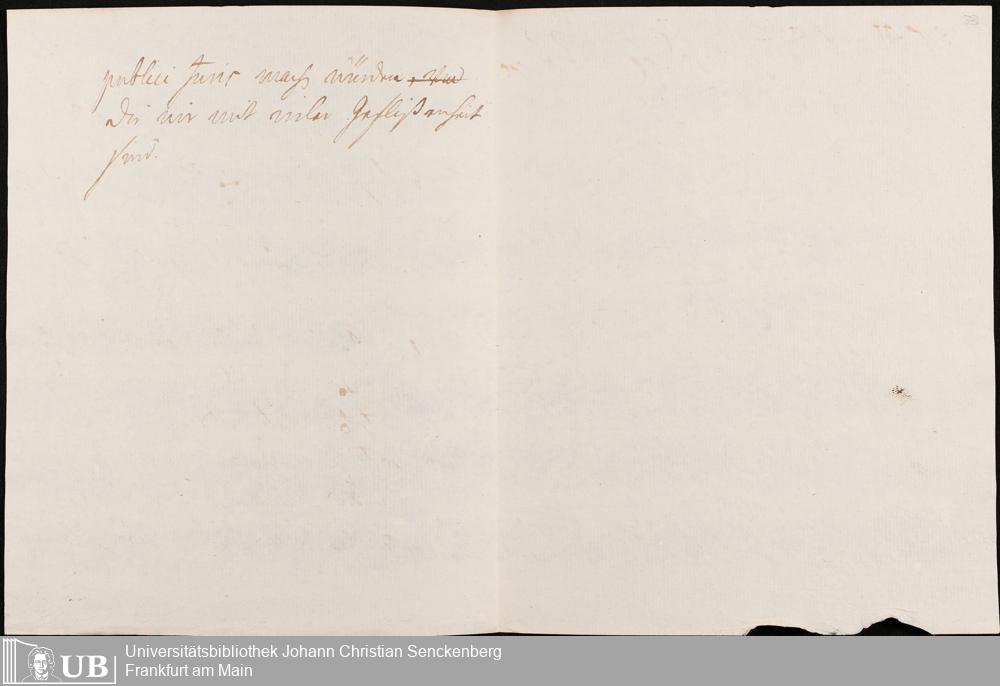 publici Juris mach würden, und
Die wir mit vieler Geflißenheit
sind.
33
UB
Universitätsbibliothek Johann Christian Senckenberg
Frankfurt am Main